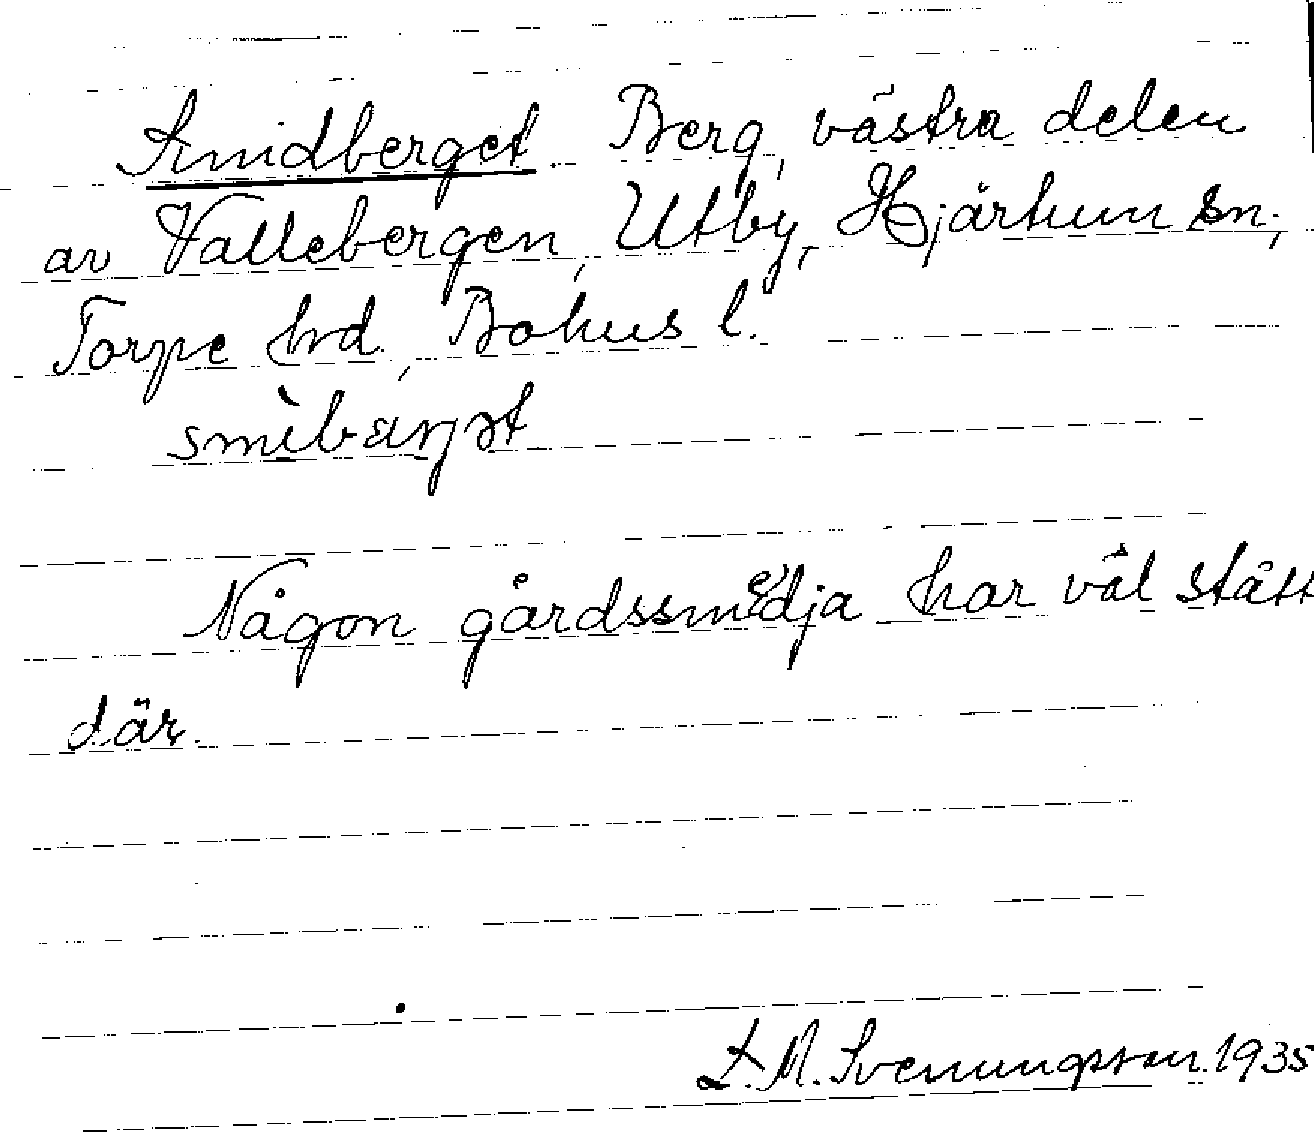 Smidberget Berg, västra delen
av Vallebergen, Utby, Hjärtum sn;
Torpe hrd, Bohus l.
smìbærjət
Någon gårdssmedja har väl stått
där.
L.M. Svenungsson. 1935